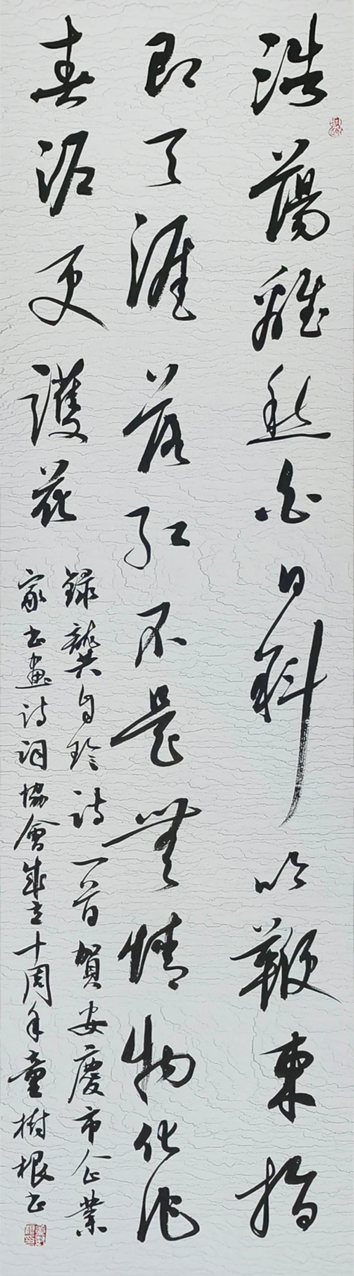 浩蕩離愁白日斜吟鞭東指
即天涯落紅不是無情物化作
春泥更護花
錄龔自珍詩一首賀安慶市企業
家書畫詩詞協會成立十周年童樹根書